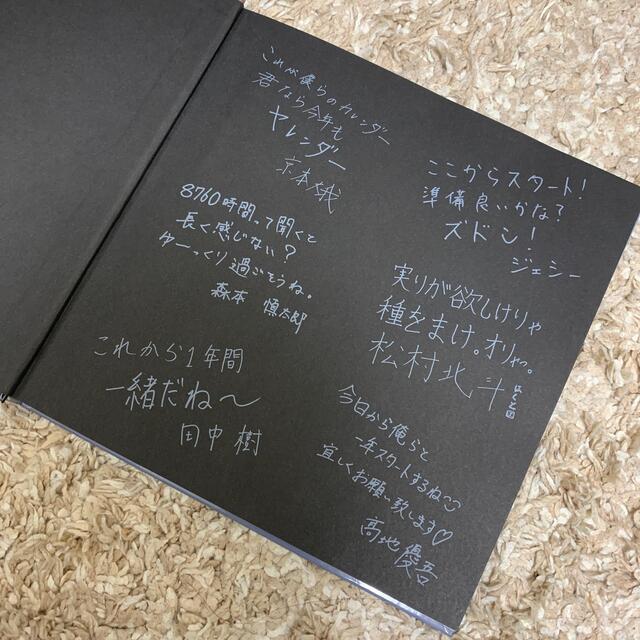 これが僕らのカレンダー
君なら今年も
ヤレンダー
京本大我
8760時間って聞くと
長く感じない？
ゆーっくり過ごそうね。
森本 慎太郎
これから1年間
一緒だね〜
田中 樹
ここからスタート！
準備良いかな？
ズドン！
ジェシー
実りが欲しけりゃ
種をまけ。オリャ。
松村北斗
今日から俺らと
一年スタートするね♡
宜しくお願い致します♡
髙地優吾